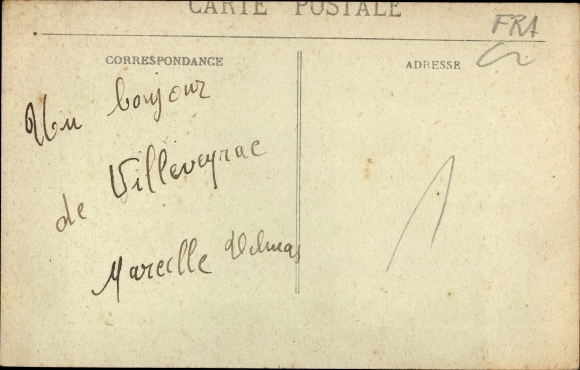 CARTE POSTALE
FRA
CORRESPONDANCE
ADRESSE
Un bonjour
de Villeveyrac
Marcelle Delmas